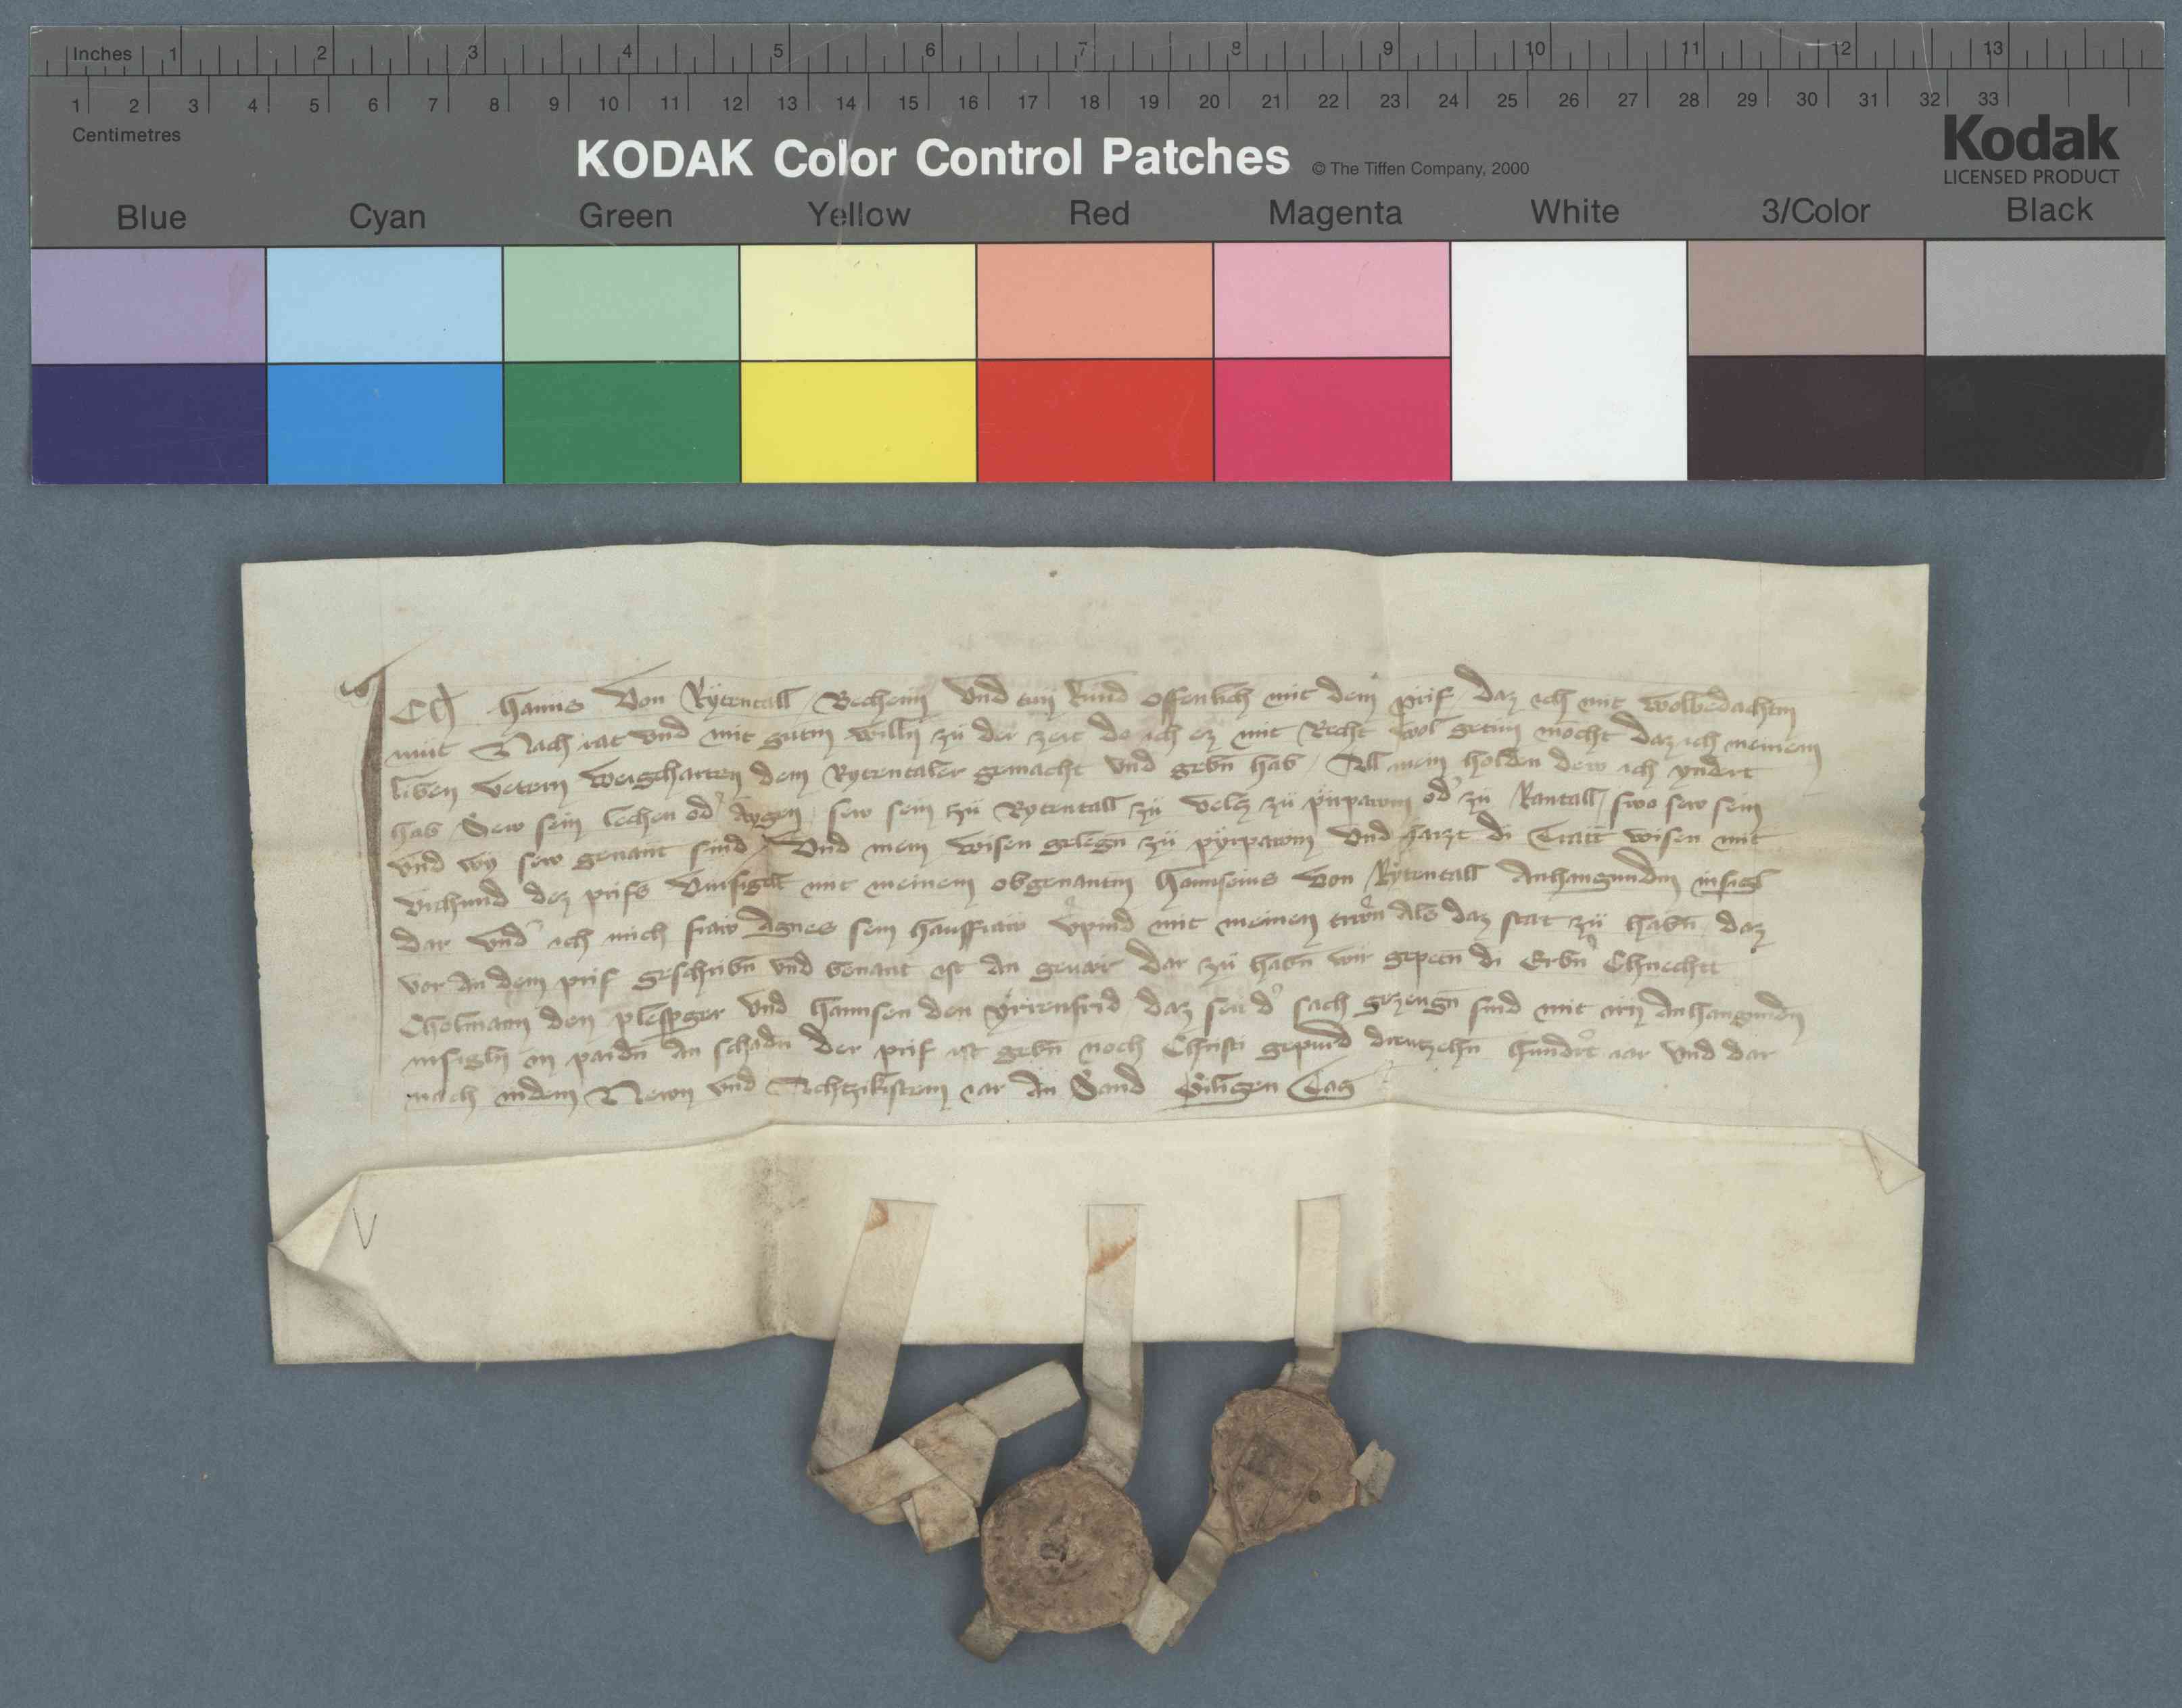 Inches 1 2 3 4 5 6 7 8 9 10 11 12 13
1 2 3 4 5 6 7 8 9 10 11 12 13 14 15 16 17 18 19 20 21 22 23 24 25 26 27 28 29 30 31 32 33
Centimetres
KODAK Color Control Patches © The Tiffen Company, 2000
Kodak
LICENSED PRODUCT
Blue Cyan Green Yellow Red Magenta White 3/Color Black
ICH Hanns von Rytentall Vechenn vnd tun kund offenlich mit dem prif daz ich mit wolbedachtm
mut Nach rat vnd mit gutm willn zu der zeit do ich ez mit Recht wol getun mocht daz ich meinem
liben vetern Weigharten dem Rytentaler gemacht vnd gebn hab All mein holden dew ich yndert
hab Sew sein lechen od aygen sew sein zu Rytentall zu velcz zu pirpawm od zu Rantall swo sew sein
vnd wy sew genant sind Vnd mein wisen gelegn zu pyrpawm vnd di wisen mit
vrchund dez prifs Vnsigelt mit meinem obgenantm Hannsens von Rytentall Anhangundm insigl
dar vnd ich mich fraw Agnes sein hausfraw vpind mit meinen trewn Als daz stat zu habn daz
vor An dem prif geschribn vnd benant ist An geuar dar zu habn wir gepetn di Erbn Chnechtt
Cholmann den vnd Hannsen den daz seu d sach gezeugn sind mit irn Anhangundn
insigln in paidn An schadn der prif ist gebn noch Christi gepurd dreutzehn hundert iar vnd dar
nach indem Newn vnd Achtzikistem iar An Sand Giligen Tag
V